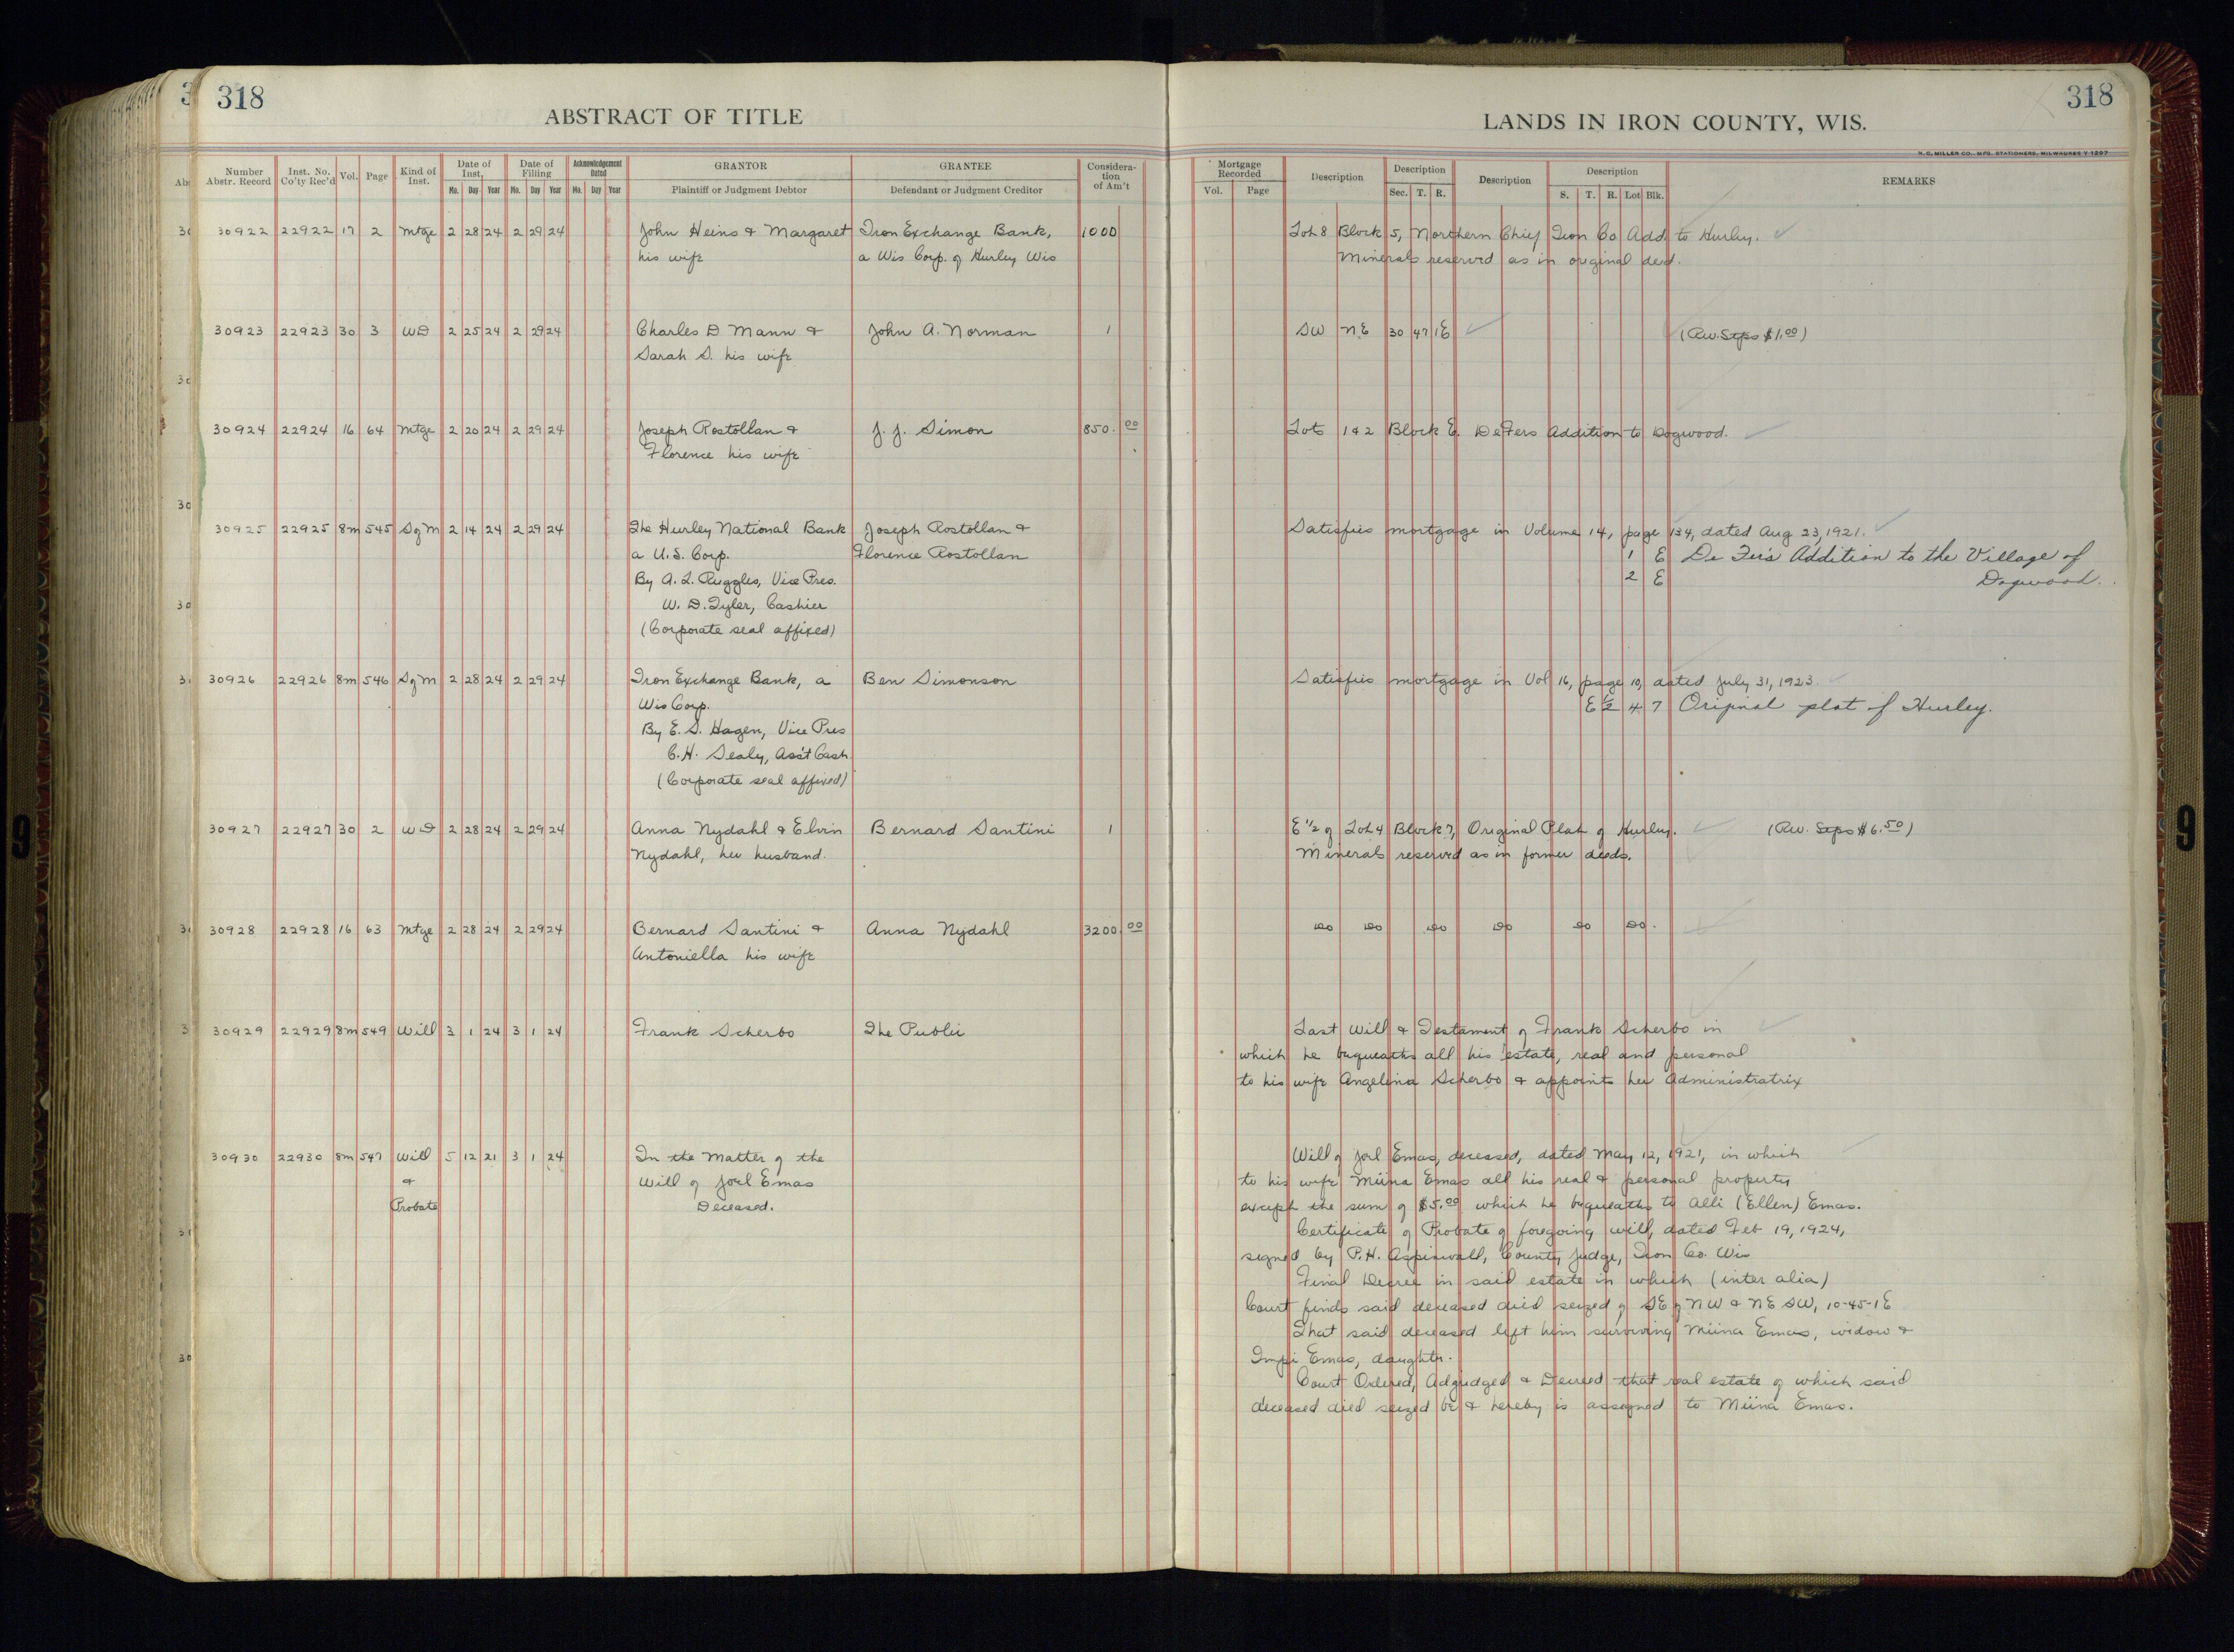 318
ABSTRACT OF TITLE
Number Abstr. Record Inst. No. Co'ty Rec'd Vol. Page Kind of Inst. Date of Inst. Mo. Day Year Date of Filling Mo. Day Year Acknowledgement Dated Mo. Day Year GRANTOR Plaintiff or Judgment Debtor GRANTEE Defendant or Judgment Creditor Considera-tion of Am't
30922 22922 17 2 Mtge 2 28 24 2 29 24 John Heins & Margaret Iron Exchange Bank, 1000
his wife a Wis Corp. of Hurley Wis
30923 22923 30 3 WD 2 25 24 2 29 24 Charles D Mann & John A. Norman 1
Sarah S. his wife
30924 22924 16 64 Mtge 2 20 24 2 29 24 Joseph Rostollan & J. J. Simon 850.00
Florence his wife
30925 22925 8m 545 S of M 2 14 24 2 29 24 The Hurley National Bank Joseph Rostollan &
a U.S. Corp. Florence Rostollan
By A. L. Ruggles, Vice Pres.
W. D. Tyler, Cashier
(Corporate seal affixed)
30926 22926 8m 546 S of M 2 28 24 2 29 24 Iron Exchange Bank, a Ben Simonson
Wis Corp.
By E. S. Hagen, Vice Pres
C. H. Sealy, Ass't Cash
(Corporate seal affixed)
30927 22927 30 2 WD 2 28 24 2 29 24 Anna Nydahl & Elvin Bernard Santini 1
Nydahl, her husband.
30928 22928 16 63 Mtge 2 28 24 2 29 24 Bernard Santini & Anna Nydahl 3200.00
Antoniella his wife
30929 22929 8m 549 Will 3 1 24 3 1 24 Frank Scherbo The Public
30930 22930 8m 547 Will 5 12 21 3 1 24 In the Matter of the
& Will of Joel Emas
Probate Deceased.
318
LANDS IN IRON COUNTY, WIS.
H. C. MILLER CO., MFG. STATIONERS, MILWAUKEE Y-1297
Mortgage Recorded Vol. Page Description Description Sec. T. R. Description Description S. T. R. Lot Blk. REMARKS
Lot 8 Block 5, Northern Chief Iron Co Add. to Hurley.
Minerals reserved as in original deed.
SW NE 30 47 1E (Rev. Stps $1.00)
Lots 1 & 2 Block E. DeFers Addition to Dogwood.
Satisfies mortgage in Volume 14, page 134, dated Aug 23, 1921.
1 E De Fer's Addition to the Village of
2 E Dogwood.
Satisfies mortgage in Vol 16, page 10, dated July 31, 1923.
E 1/2 4 7 Original plat of Hurley.
E 1/2 of Lot 4 Block 7, Original Plat of Hurley. (Rev. Stps $6.50)
Minerals reserved as in former deeds.
Do Do Do Do Do Do.
Last Will & Testament of Frank Scherbo in
which he bequeaths all his estate, real and personal
to his wife Angelina Scherbo & appoints her Administratrix
Will of Joel Emas, deceased, dated May 12, 1921, in which
to his wife Miina Emas all his real & personal property
except the sum of $5.00 which he bequeaths to Alli (Ellen) Emas.
Certificate of Probate of foregoing will, dated Feb 19, 1924,
signed by P. H. Aspinwall, County Judge, Iron Co. Wis
Final Decree in said estate in which (inter alia)
Court finds said deceased died seized of SE of NW & NE SW, 10-45-1E
That said deceased left him surviving Miina Emas, widow &
Impi Emas, daughter.
Court Ordered, Adjudged & Decreed that real estate of which said
deceased died seized be & hereby is assigned to Miina Emas.
9
9